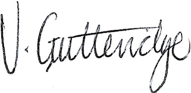 V. Guttendge